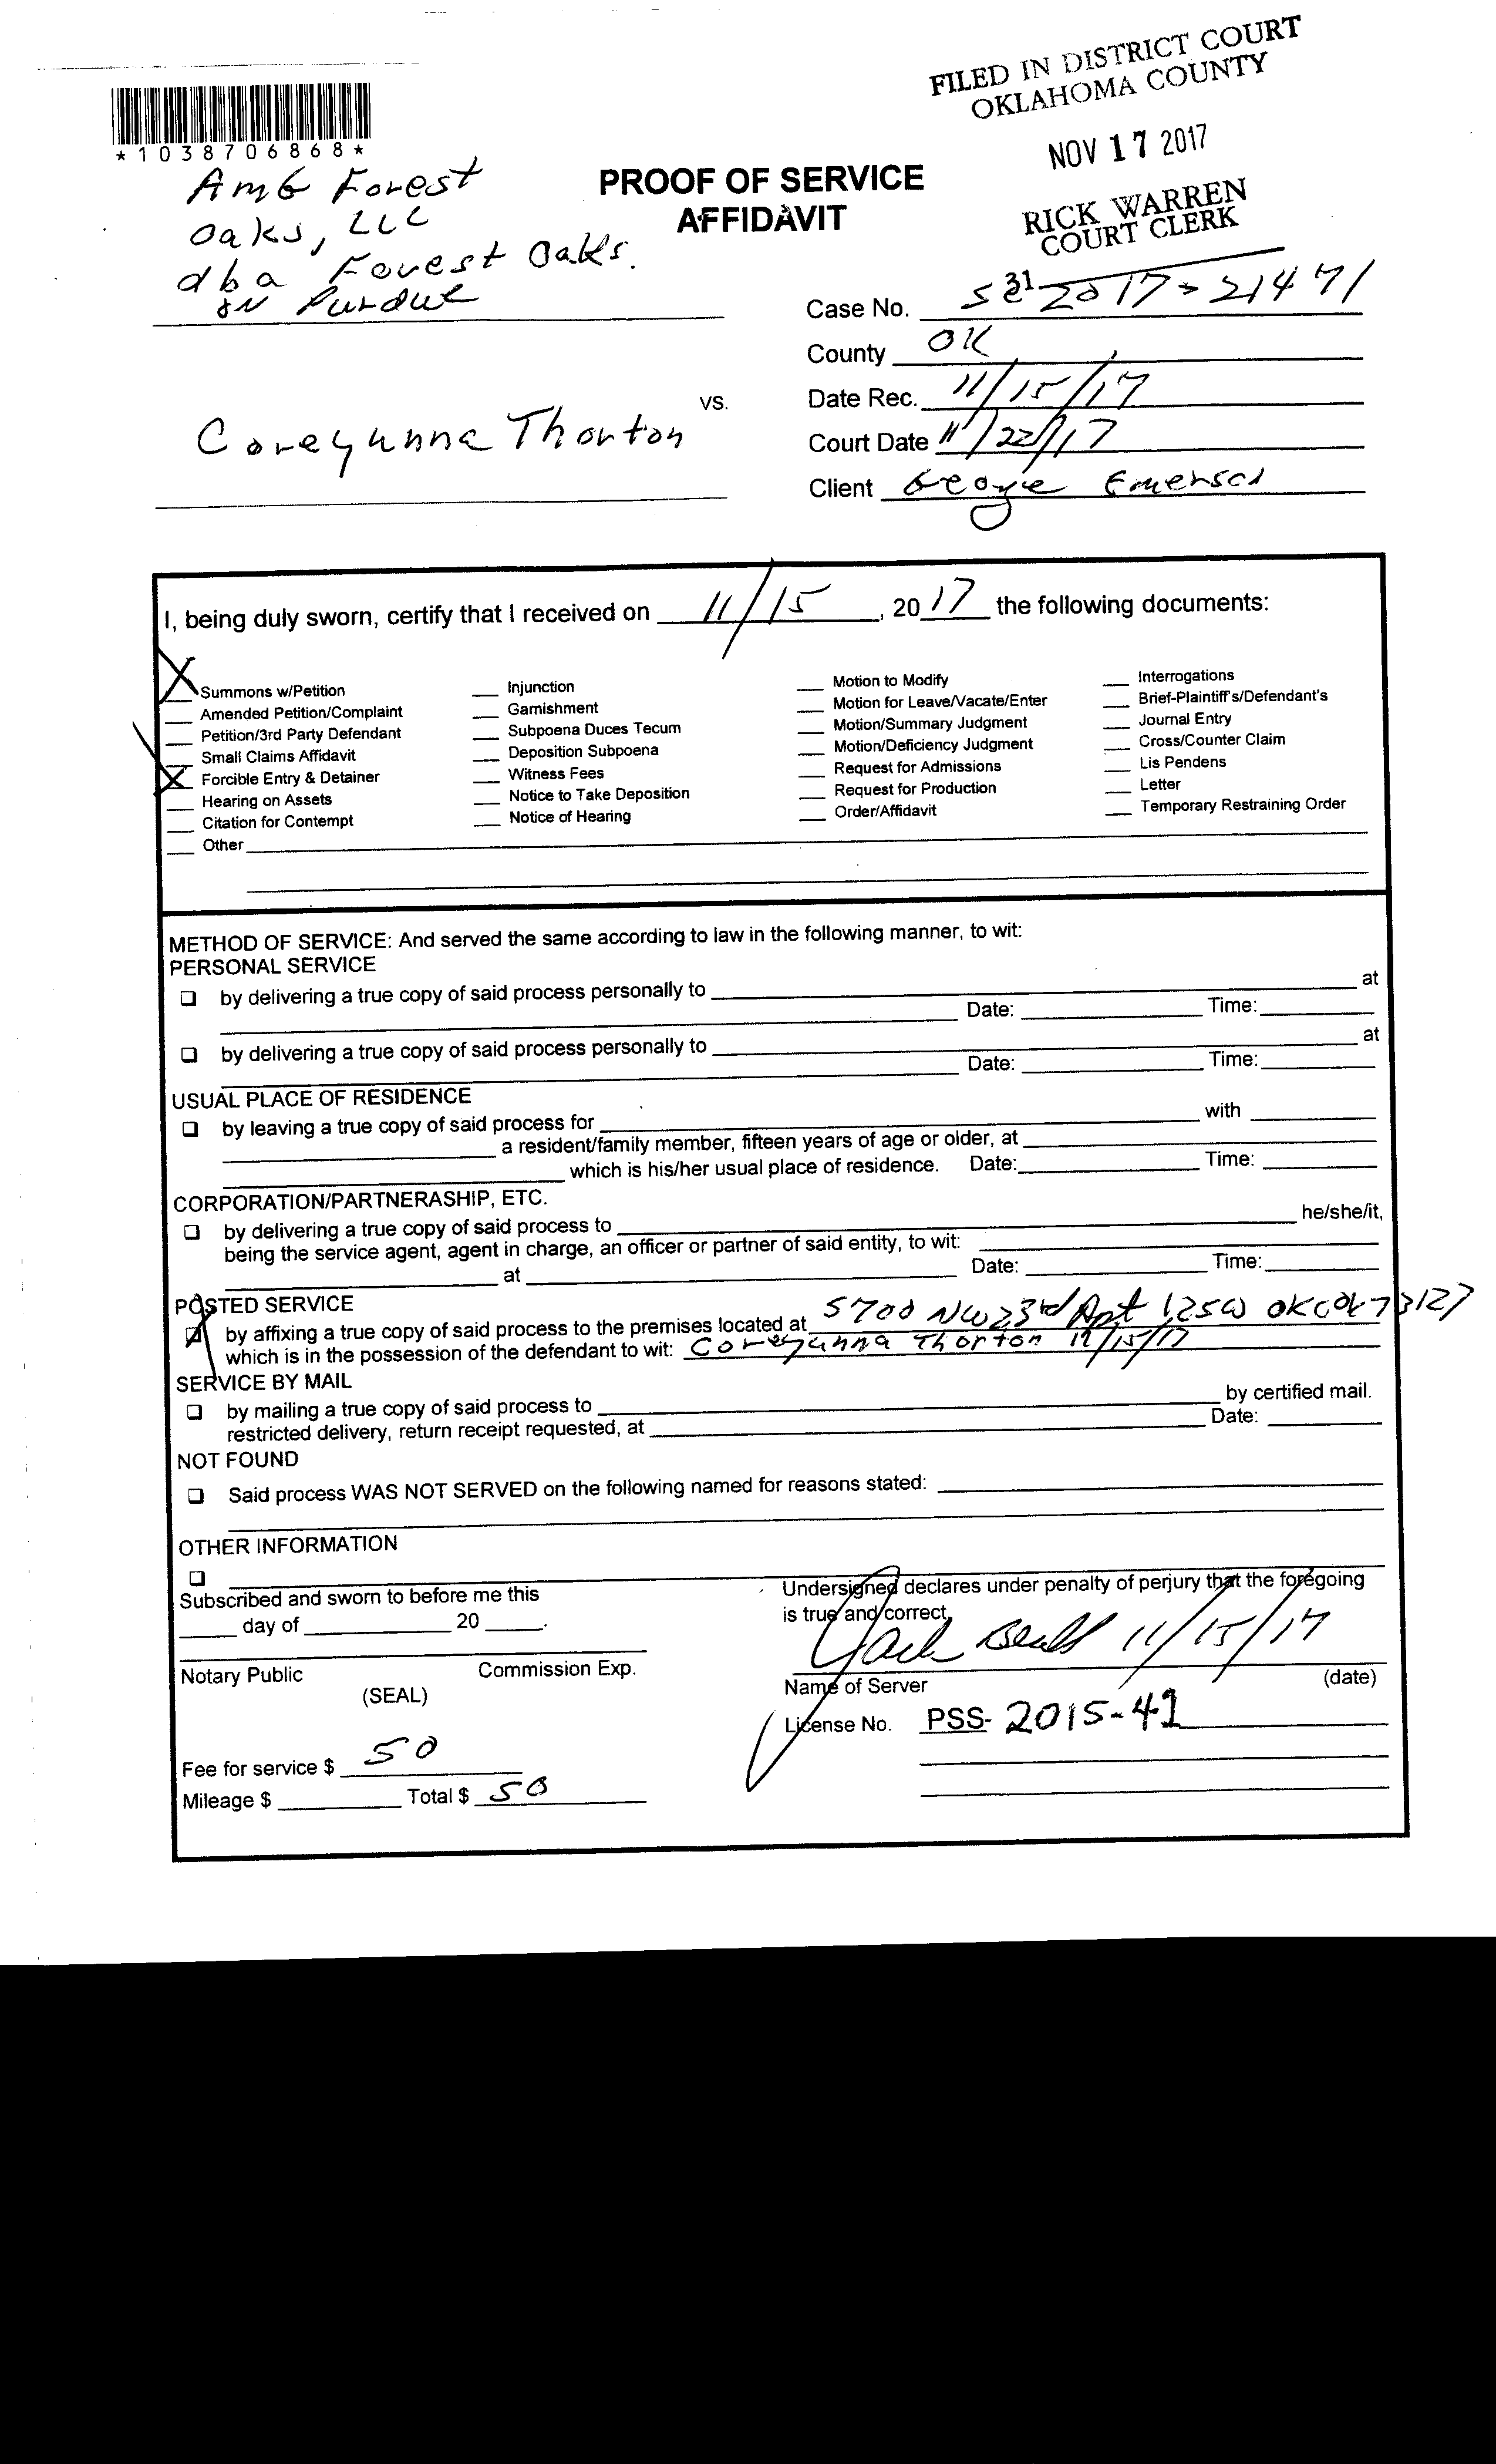 FILED IN DISTRICT COURT
OKLAHOMA COUNTY
NOV 17 2017
RICK WARREN
COURT CLERK
31
*1038706868*
PROOF OF SERVICE
AFFIDAVIT
AMG Forest
Oaks, LLC
dba Forest Oaks.
on Purdue
vs.
Coreyunna Thorton
Case No. SC 2017-21471
County OK
Date Rec. 11/15/17
Court Date 11/22/17
Client George Emerson
I, being duly sworn, certify that I received on 11/15, 2017 the following documents:
X Summons w/Petition
Amended Petition/Complaint
Petition/3rd Party Defendant
Small Claims Affidavit
X Forcible Entry & Detainer
Hearing on Assets
Citation for Contempt
Other
Injunction
Garnishment
Subpoena Duces Tecum
Deposition Subpoena
Witness Fees
Notice to Take Deposition
Notice of Hearing
Motion to Modify
Motion for Leave/Vacate/Enter
Motion/Summary Judgment
Motion/Deficiency Judgment
Request for Admissions
Request for Production
Order/Affidavit
Interrogations
Brief-Plaintiff's/Defendant's
Journal Entry
Cross/Counter Claim
Lis Pendens
Letter
Temporary Restraining Order
METHOD OF SERVICE: And served the same according to law in the following manner, to wit:
PERSONAL SERVICE
by delivering a true copy of said process personally to at
Date: Time:
by delivering a true copy of said process personally to at
Date: Time:
USUAL PLACE OF RESIDENCE
by leaving a true copy of said process for with
a resident/family member, fifteen years of age or older, at
which is his/her usual place of residence. Date: Time:
CORPORATION/PARTNERASHIP, ETC.
by delivering a true copy of said process to he/she/it,
being the service agent, agent in charge, an officer or partner of said entity, to wit:
at Date: Time:
POSTED SERVICE
by affixing a true copy of said process to the premises located at 5700 NW 23rd Apt 125W OKC OK 73127
which is in the possession of the defendant to wit: Coreyunna Thorton 11/15/17
SERVICE BY MAIL
by mailing a true copy of said process to by certified mail.
restricted delivery, return receipt requested, at Date:
NOT FOUND
Said process WAS NOT SERVED on the following named for reasons stated:
OTHER INFORMATION
Subscribed and sworn to before me this
day of 20 .
Notary Public Commission Exp.
(SEAL)
Fee for service $ 50
Mileage $ Total $ 50
Undersigned declares under penalty of perjury that the foregoing
is true and correct.
11/15/17
Name of Server (date)
License No. PSS- 2015-41